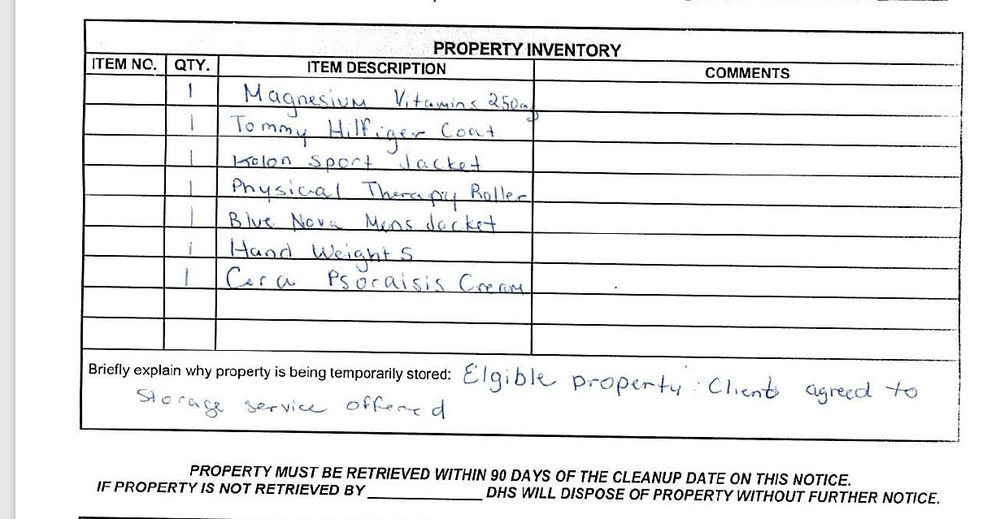 PROPERTY INVENTORY
ITEM NO. QTY. ITEM DESCRIPTION COMMENTS
1 Magnesium Vitamins 250mg
1 Tommy Hilfiger Coat
1 Kolon Sport Jacket
1 Physical Therapy Roller
1 Blue Nova Mens Jacket
1 Hand Weights
1 Cera Psoraisis Cream
Briefly explain why property is being temporarily stored: Elgible property. Client agreed to
storage service offered
PROPERTY MUST BE RETRIEVED WITHIN 90 DAYS OF THE CLEANUP DATE ON THIS NOTICE.
IF PROPERTY IS NOT RETRIEVED BY ____________ DHS WILL DISPOSE OF PROPERTY WITHOUT FURTHER NOTICE.